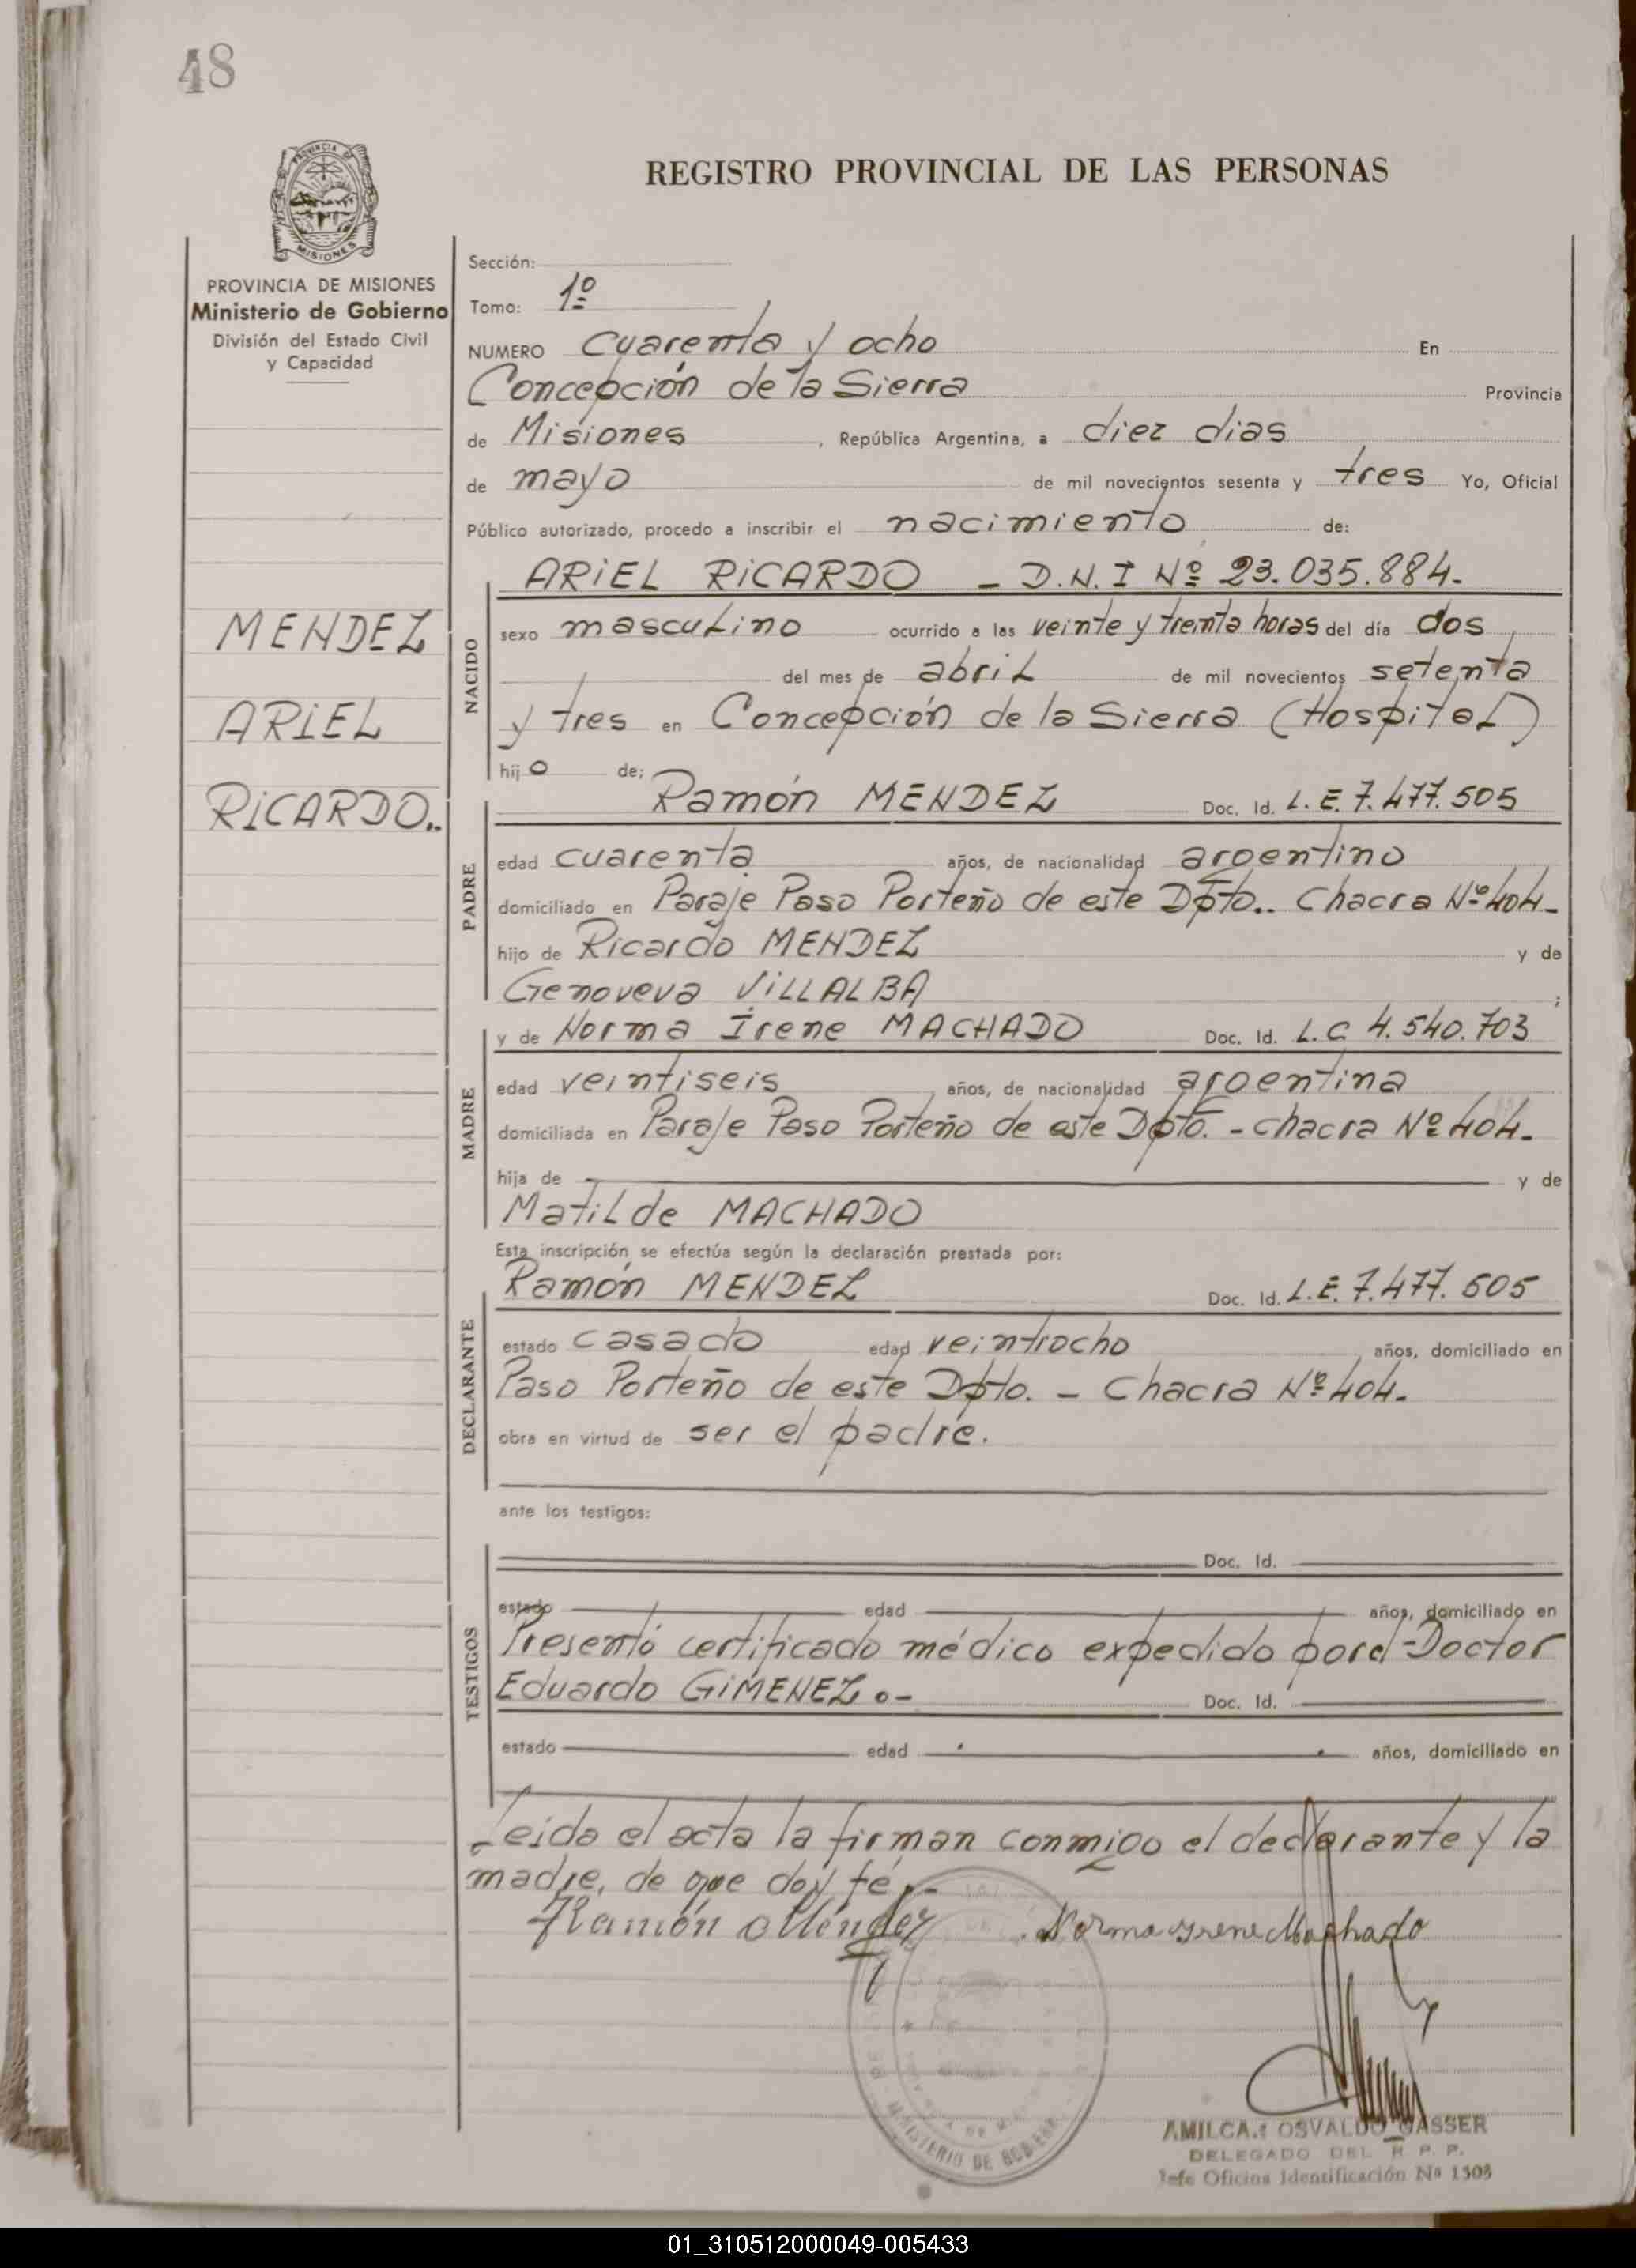 48
REGISTRO PROVINCIAL DE LAS PERSONAS
PROVINCIA DE MISIONES
Ministerio de Gobierno
División del Estado Civil
y Capacidad
MENDEZ
ARIEL
RICARDO..
Sección:
Tomo: 1º
NUMERO cuarenta y ocho En
Concepción de la Sierra Provincia
de Misiones, República Argentina, a diez dias
de mayo de mil novecientos sesenta y tres Yo, Oficial
Público autorizado, procedo a inscribir el nacimiento de:
NACIDO
ARIEL RICARDO - D.N.I Nº 23.035.884.
sexo masculino ocurrido a las veinte y treinta horas del día dos
del mes de abril de mil novecientos setenta
y tres en Concepción de la Sierra (Hospital)
hijo de;
PADRE
Ramón MENDEZ Doc. Id. L.E. 7.477.505
edad cuarenta años, de nacionalidad argentino
domiciliado en Paraje Paso Porteño de este Dpto.. Chacra Nº 404-
hijo de Ricardo MENDEZ y de
Genoveva VILLALBA ;
MADRE
y de Norma Irene MACHADO Doc. Id. L.C 4.540.703
edad veintiseis años, de nacionalidad argentina
domiciliada en Paraje Paso Porteño de este Dpto. - Chacra Nº 404.
hija de y de
Matilde MACHADO
Esta inscripción se efectúa según la declaración prestada por:
DECLARANTE
Ramón MENDEZ Doc. Id. L.E. 7.477.505
estado casado edad veintiocho años, domiciliado en
Paso Porteño de este Dpto. - Chacra Nº 404.
obra en virtud de ser el padre.
ante los testigos:
TESTIGOS
Doc. Id.
estado edad años, domiciliado en
Presentó certificado médico expedido por el Doctor
Eduardo GIMENEZ.- Doc. Id.
estado edad años, domiciliado en
Leida el acta la firman conmigo el declarante y la
madre, de que doy fé.-
Ramón Méndez Norma Irene Machado
MINISTERIO DE GOBIERNO
AMILCAR OSVALDO GASSER
DELEGADO DEL R. P. P.
Jefe Oficina Identificación Nº 1303
01_310512000049-005433